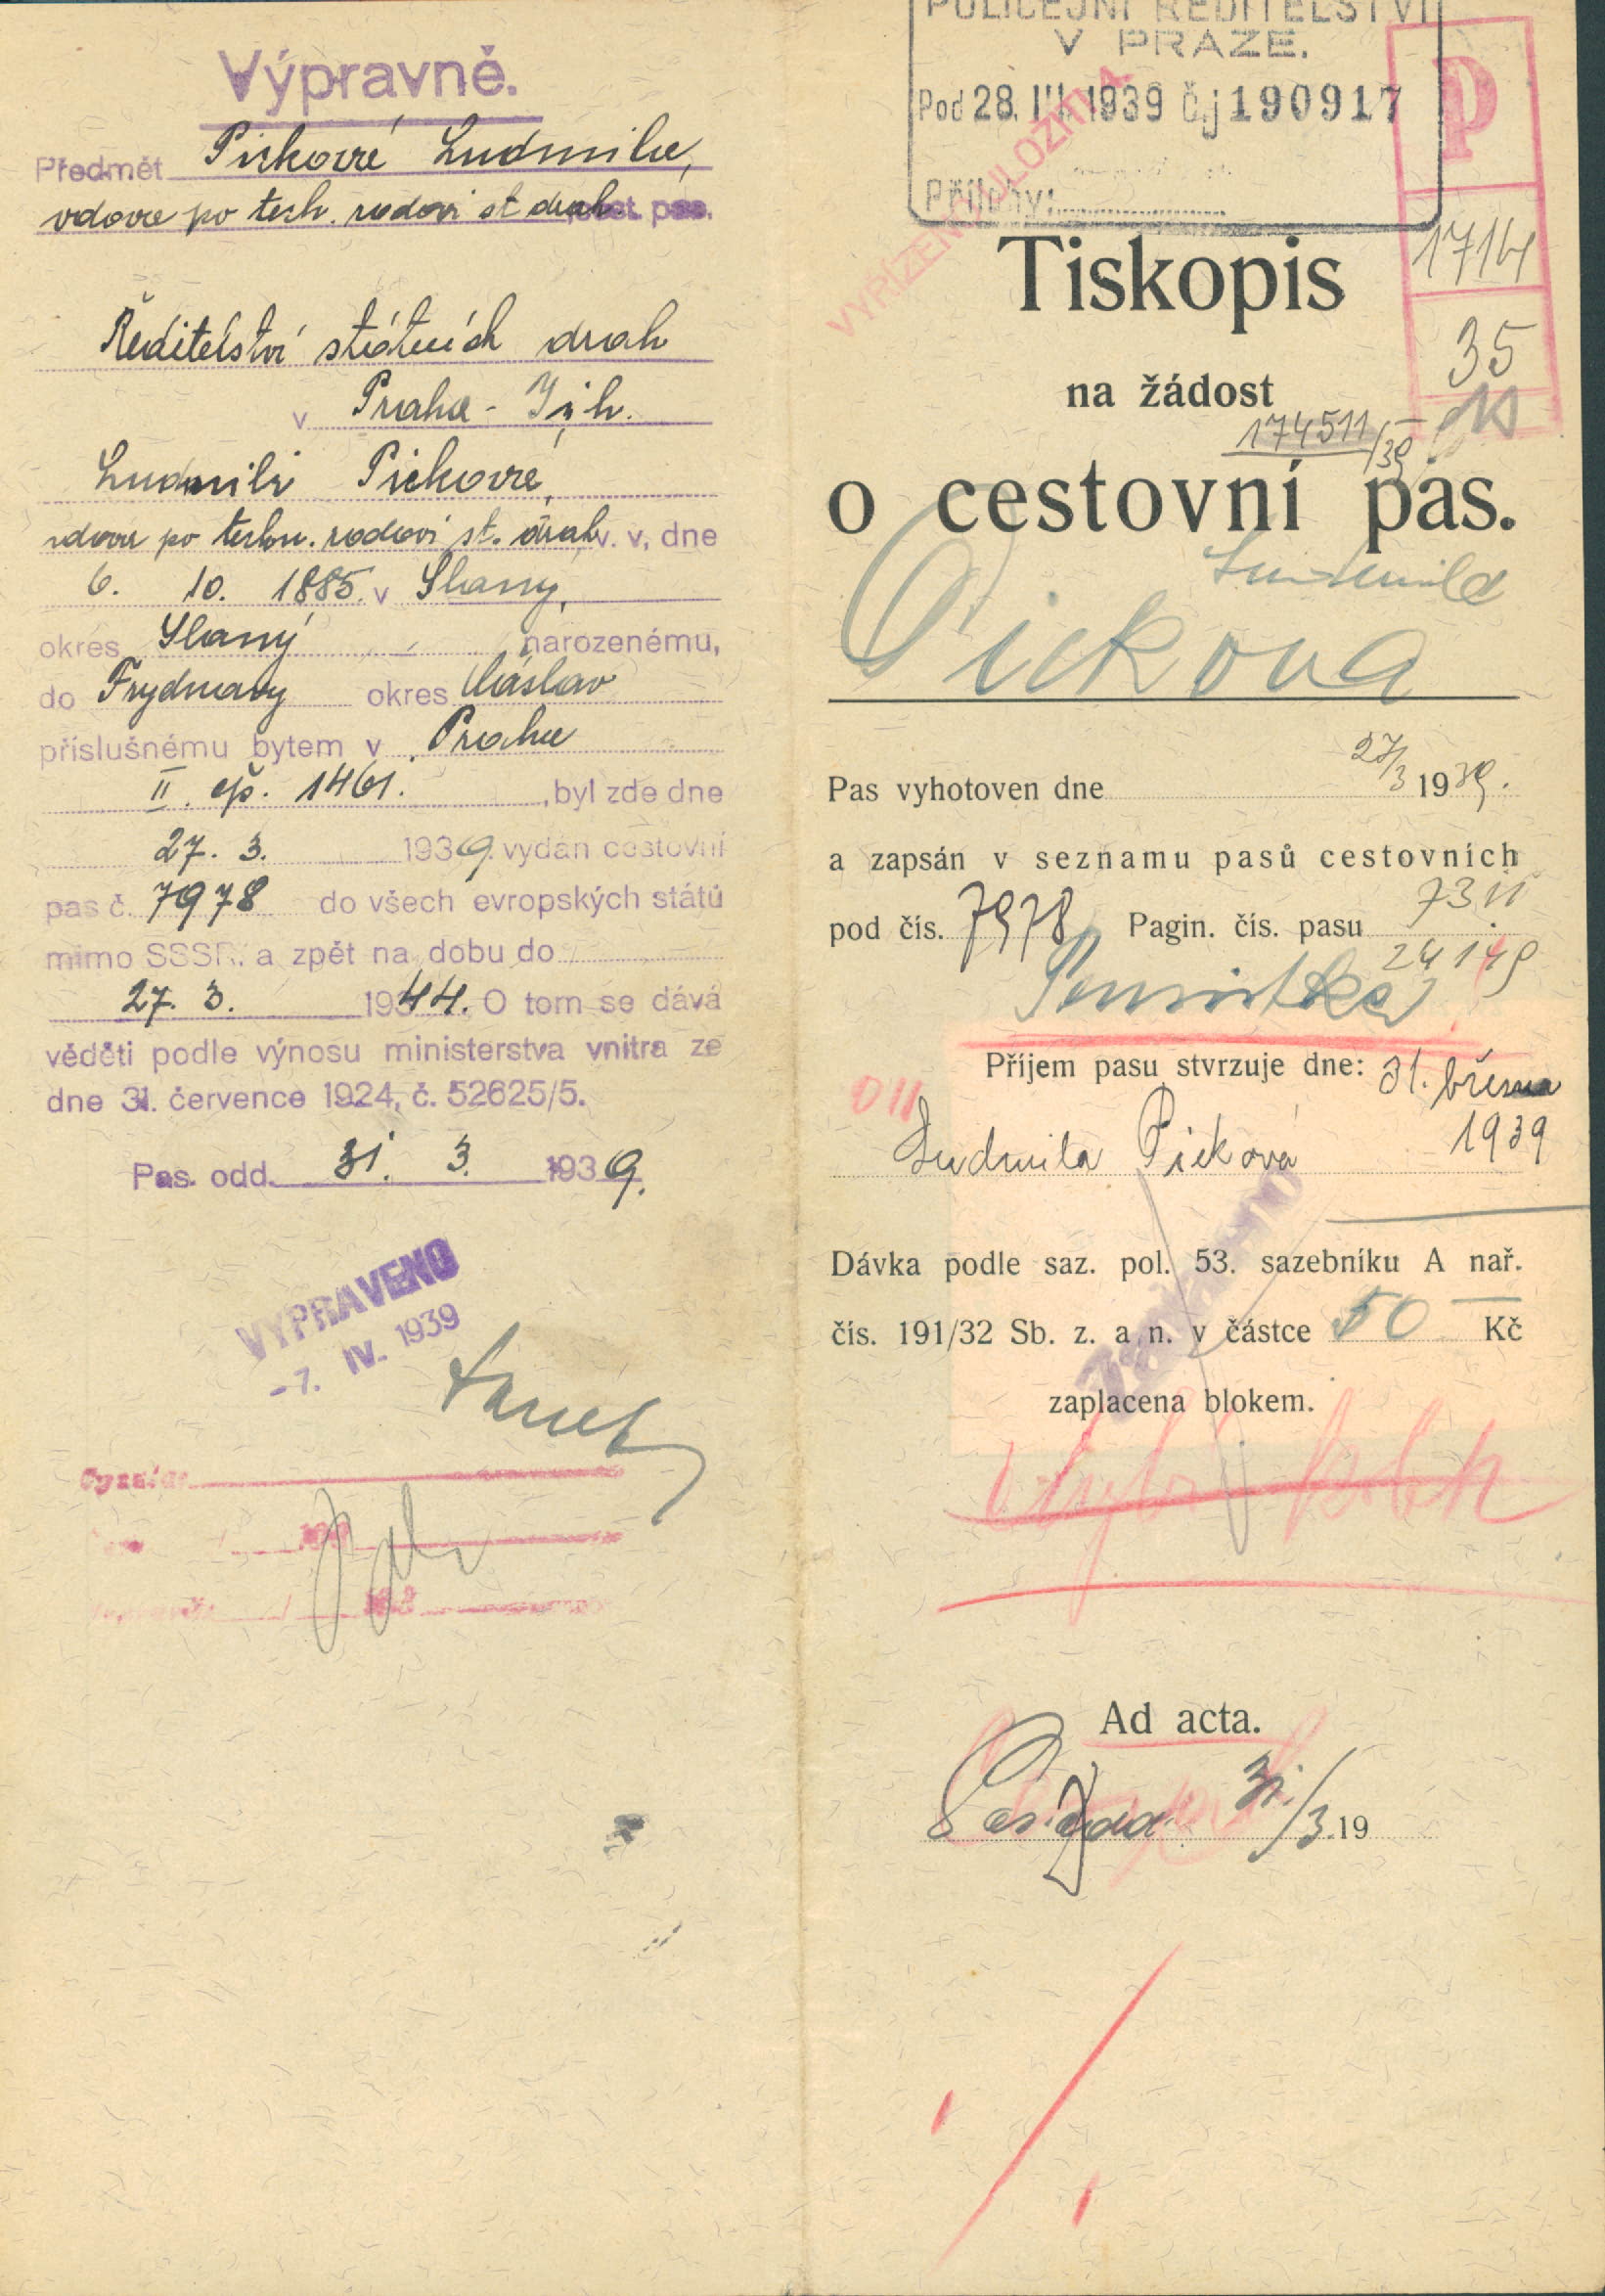 Výpravně.
Předmět Pickové Ludmile,
vdově po tech. radovi st. drah cest. pas.
Ředitelství státních drah
v Praha - Jih.
Ludmile Pickové,
vdově po techn. radovi st. drah v. v, dne
6. 10. 1885. v Slaný,
okres Slaný narozenému,
do Frydnavy okres Čáslav
příslušnému bytem v Praha
II. čp. 1461. , byl zde dne
27. 3. 1939. vydán cestovní
pas č. 7978 do všech evropských států
mimo SSSR. a zpět na dobu do
27. 3. 1944. O tom se dává
věděti podle výnosu ministerstva vnitra ze
dne 31. července 1924, č. 52625/5.
Pas. odd. 31. 3. 1939.
VYPRAVENO
-7. IV. 1939
POLICEJNÍ ŘEDITELSTVÍ
V PRAZE.
Pod 28. III. 1939 č.j 190917
Přílohy:
VYŘÍZENO ULOŽITI
P
1714
35
Tiskopis
na žádost
174511/39
o cestovní pas.
Ludmila
Picková
Pas vyhotoven dne 27/3 1939.
a zapsán v seznamu pasů cestovních
pod čís. 7978 Pagin. čís. pasu
24149
Příjem pasu stvrzuje dne: 31. března
1939
Ludmila Picková
Dávka podle saz. pol. 53. sazebníku A nař.
čís. 191/32 Sb. z. a n. v částce 50 Kč
zaplacena blokem.
Ad acta.
Pas. odd. 31./3.19